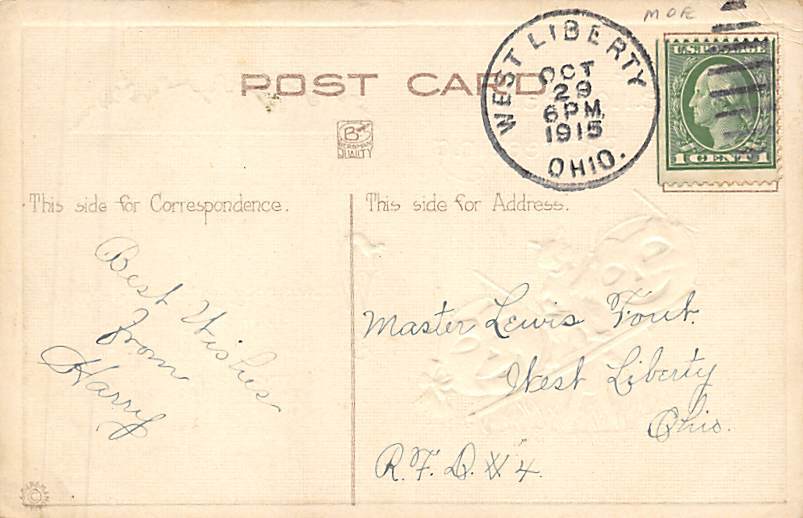 MOE
POST CARD
WEST LIBERTY
OCT
29
6 PM
1915
OHIO.
U.S. POSTAGE
1 CENT 1
B
QUALITY
This side for Correspondence.
This side for Address.
Best Wishes
from
Harry
Master Lewis Fout.
West Liberty
Ohio.
R.F.D. # 4.